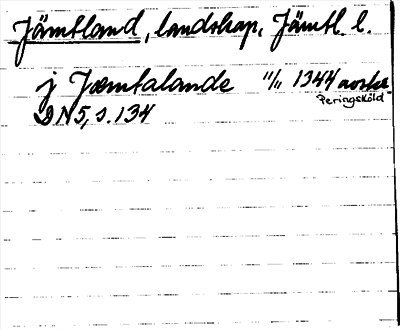 Jämtland, landskap, Jämtl. l.
j Jæmtalande 11/11 1344 avskr
Peringsköld
DN 5, s. 134